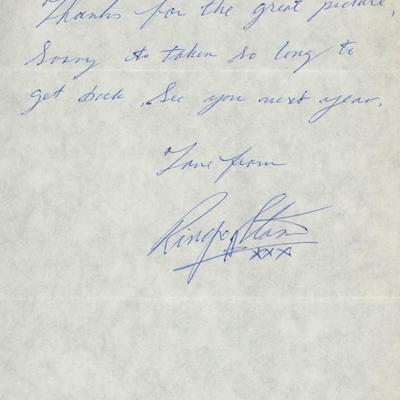 Thanks for the great picture,
Sorry its taken so long to
get back. See you next year.
Love from
Ringo Starr
xxx